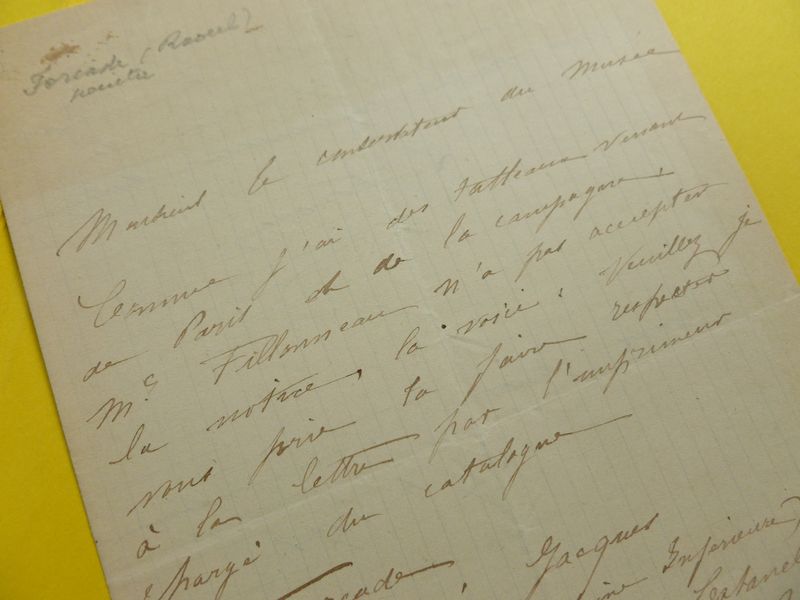 Forcade (Raoul)
peintre
Monsieur le conservateur du Musée
Comme j'ai des tableaux venant
de Paris et de la campagne,
Mr Fillonneau n'a pas accepter
la notice, la voici. Veuillez je
vous prie la faire respecter
à la lettre par l'imprimeur
chargé du catalogue
Forcade, Jacques
Inférieure)
Cabanel